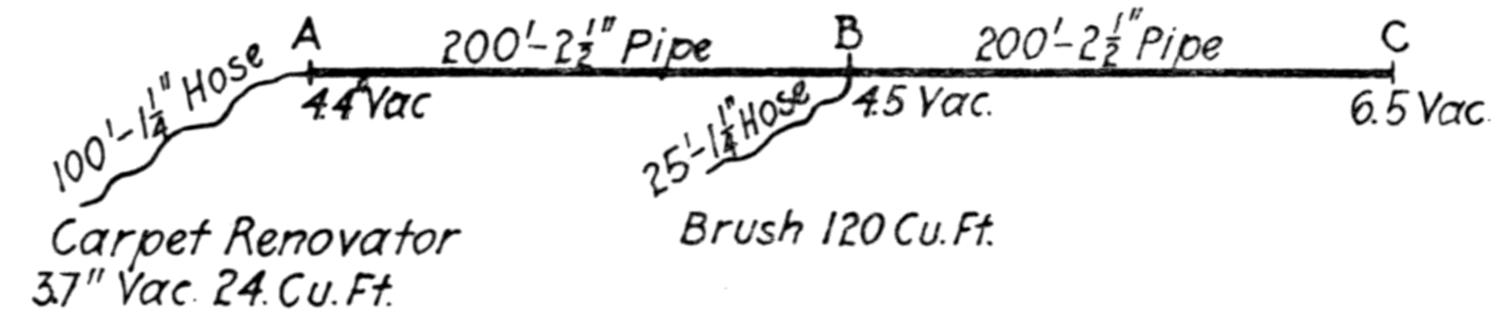 A B C
200'-2½" Pipe 200'-2½" Pipe
100'-1¼" Hose 4.4" Vac 25'-1¼" Hose 4.5 Vac. 6.5 Vac.
Carpet Renovator Brush 120 Cu.Ft.
3.7" Vac. 24. Cu.Ft.